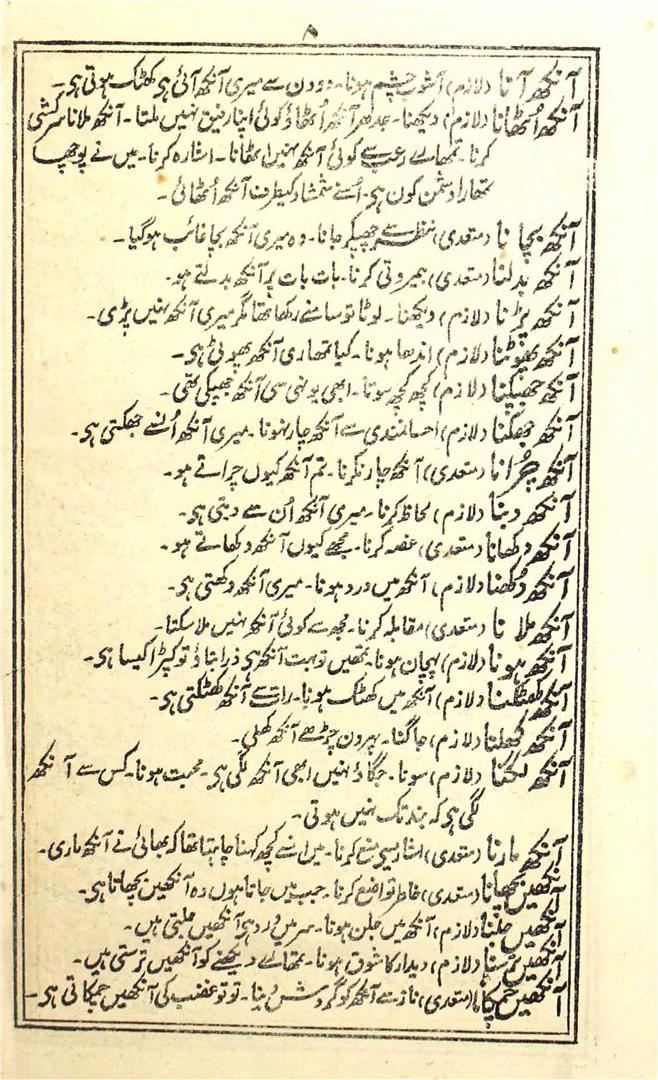 ۸
آنکھ آنا (لازم) آشوب چشم ہونا۔ دو دن سے میری آنکھ آئی ہی کھٹک ہوتی ہی۔
آنکھ اُٹھانا (لازم) دیکھنا۔ جدھر آنکھ اُٹھاؤ کوئی اپنا رفیق نہیں ملتا۔ آنکھ ملانا سرکشی
کرنا۔ تمھارے رعب سے کوئی آنکھ نہیں اٹھاتا۔ اشارہ کرنا۔ میں نے پوچھا
تمھارا دشمن کون ہی۔ اُسنے شمشاد کیطرف آنکھ اُٹھائی۔
آنکھ بچانا (متعدی) نظر سے چھپکر جانا۔ وہ میری آنکھ بچا غائب ہوگیا۔
آنکھ بدلنا (متعدی) بیمروتی کرنا۔ بات بات پر آنکھ بدلتے ہو۔
آنکھ پڑنا (لازم) دیکھنا۔ لوٹا تو سامنے رکھا تھا مگر میری آنکھ نہیں پڑی۔
آنکھ پھوٹنا (لازم) اندھا ہونا۔ کیا تمھاری آنکھ پھوٹی ہی۔
آنکھ جھپکنا (لازم) کچھ کچھ سونا۔ ابھی یونہی سی آنکھ جھپکی تھی۔
آنکھ جھکنا (لازم) احسانمندی سے آنکھ چار نہونا۔ میری آنکھ اُنسے جھکتی ہی۔
آنکھ چُرانا (متعدی) آنکھ چار نکرنا۔ تم آنکھ کیوں چراتے ہو۔
آنکھ دبنا (لازم) لحاظ کرنا۔ میری آنکھ اُن سے دبتی ہی۔
آنکھ دکھانا (متعدی) غصہ کرنا۔ مجھے کیوں آنکھ دکھاتے ہو۔
آنکھ دُکھنا (لازم) آنکھ میں درد ہونا۔ میری آنکھ دکھتی ہی۔
آنکھ ملانا (متعدی) مقابلہ کرنا۔ مجھ سے کوئی آنکھ نہیں ملا سکتا۔
آنکھ ہونا (لازم) پہچان ہونا۔ تمھیں تو بہت آنکھ ہی ذرا بتاؤ تو کپڑا کیسا ہی۔
آنکھ کھٹکنا (لازم) آنکھ میں کھٹک ہونا۔ رات سے آنکھ کھٹکتی ہی۔
آنکھ کھلنا (لازم) جاگنا۔ پہر دن چڑھے آنکھ کھلی۔
آنکھ لگنا (لازم) سونا۔ جگاؤ نہیں ابھی آنکھ لگی ہی۔ محبت ہونا۔ کس سے آنکھ
لگی ہی کہ بند تک نہیں ہوتی۔
آنکھ مارنا (متعدی) اشارے سے منع کرنا۔ میں اُنسے کچھ کہنا چاہتا تھا کہ بھائی نے آنکھ ماری۔
آنکھیں بچھانا (متعدی) خاطر تواضع کرنا۔ جب میں جاتا ہوں وہ آنکھیں بچھاتا ہی۔
آنکھیں جلنا (لازم) آنکھ میں جلن ہونا۔ سر میں درد ہی آنکھیں جلتی ہیں۔
آنکھیں ترسنا (لازم) دیدار کا شوق ہونا۔ تمھارے دیکھنے کو آنکھیں ترستی ہیں۔
آنکھیں چمکانا (متعدی) ناز سے آنکھ کو گردش دینا۔ تو تو غضب کی آنکھیں چمکاتی ہی۔